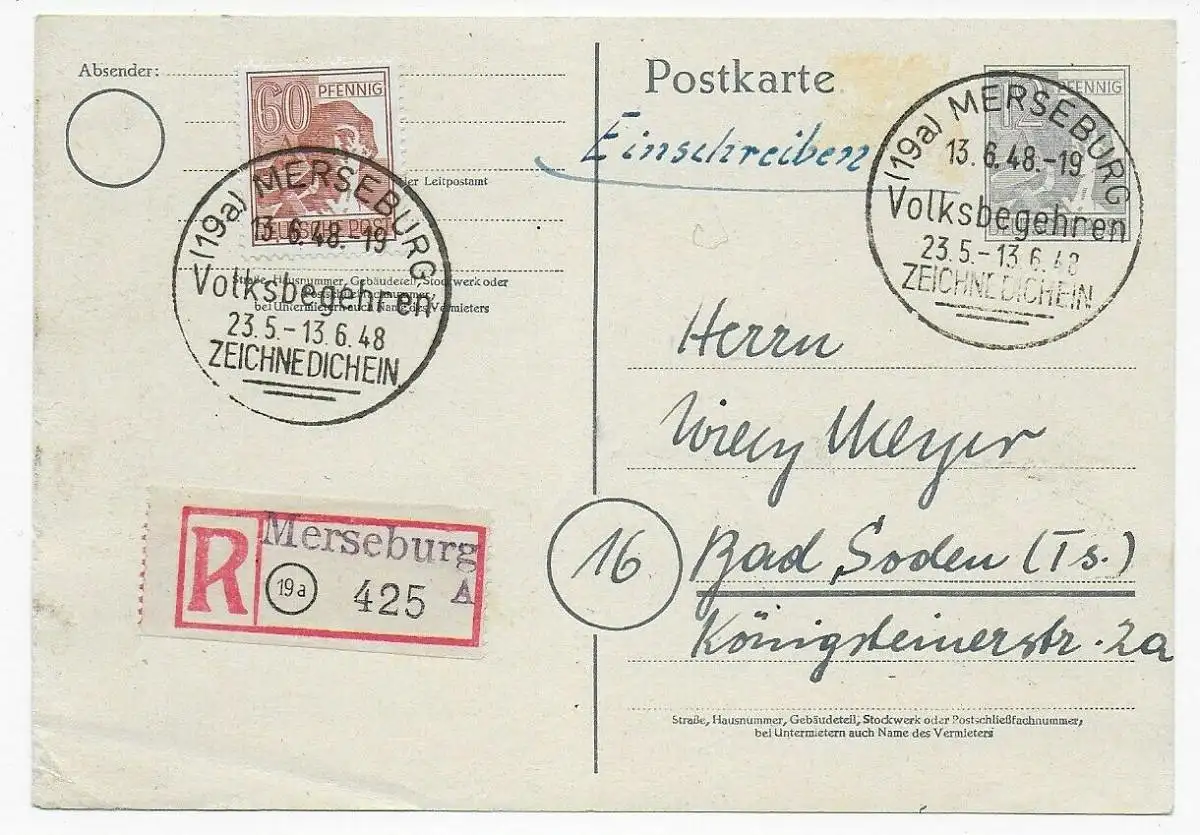 Absender:
60 PFENNIG
der Leitpostamt
DEUTSCHE POST
(19a) MERSEBURG
13.6.48.-19
Volksbegehren
23.5.-13.6.48
ZEICHNE DICH EIN
Straße, Hausnummer, Gebäudeteil, Stockwerk oder
Postschließfachnummer,
bei Untermietern auch Name des Vermieters
R
Merseburg
19a 425 A
Postkarte
Einschreiben
12 PFENNIG
(19a) MERSEBURG
13.6.48.-19
Volksbegehren
23.5.-13.6.48
ZEICHNE DICH EIN
Herrn
Willy Meyer
16 Bad Soden (Ts.)
Königsteinerstr. 2a
Straße, Hausnummer, Gebäudeteil, Stockwerk oder Postschließfachnummer,
bei Untermietern auch Name des Vermieters